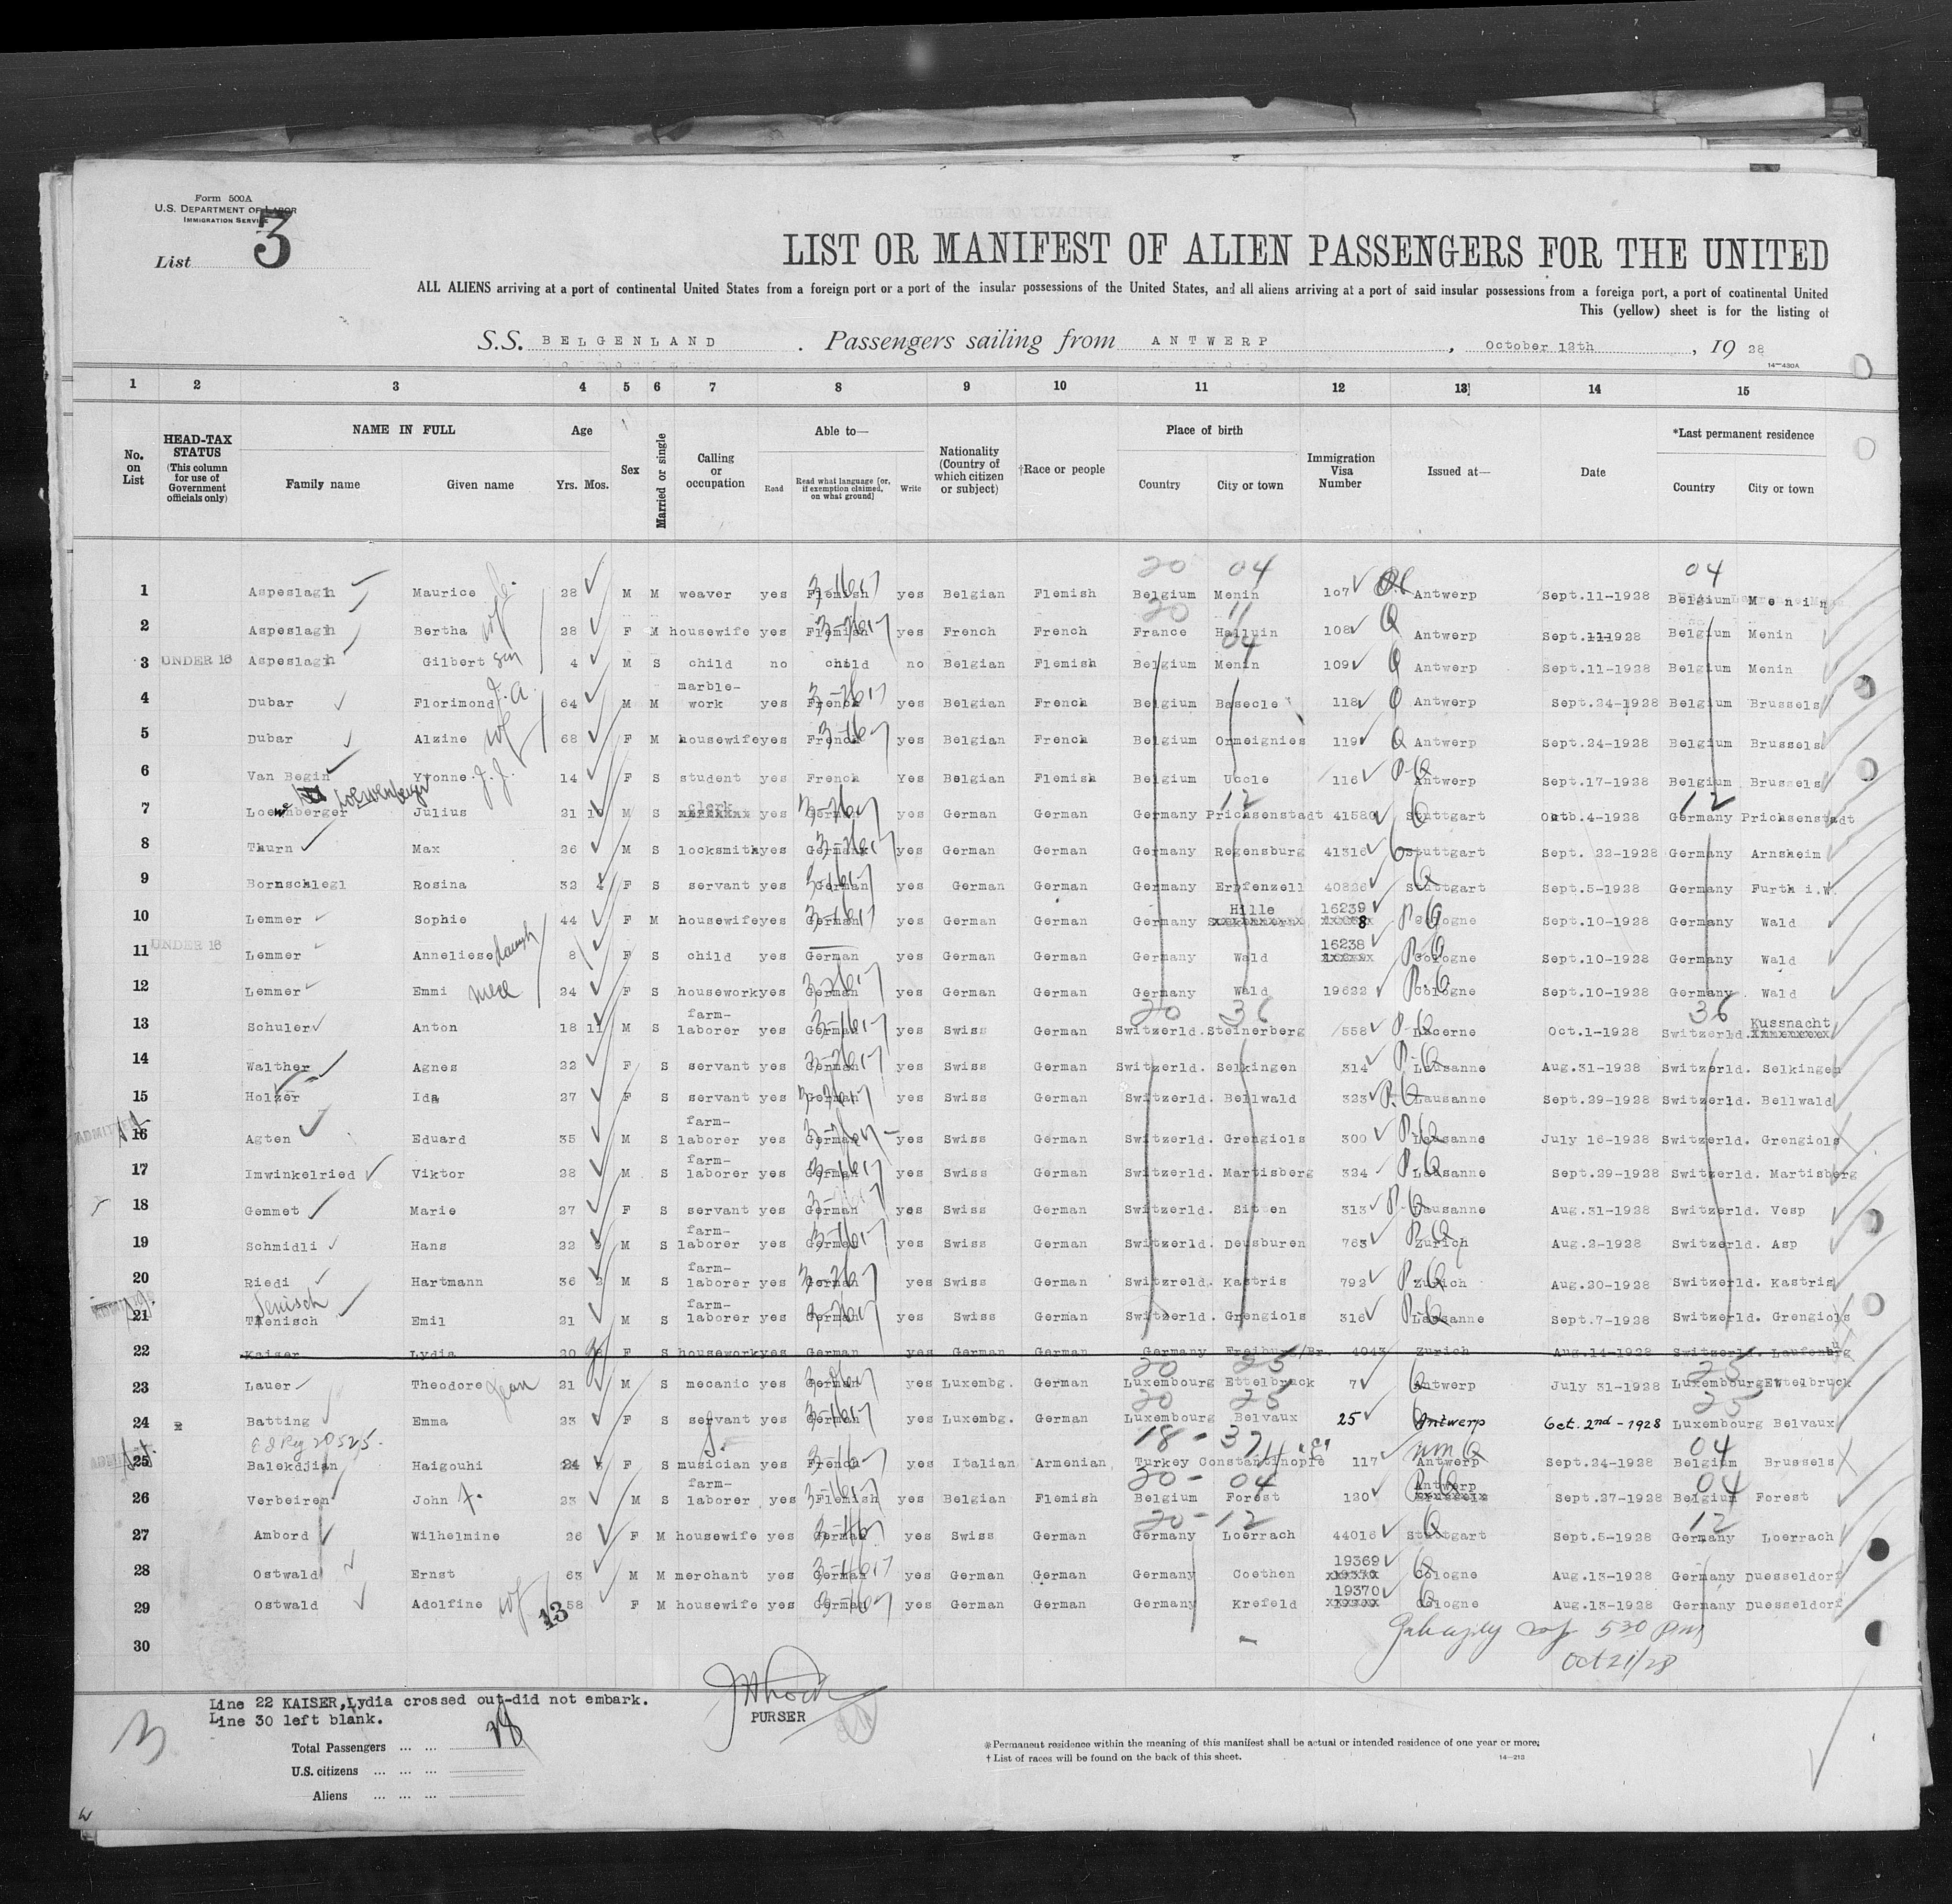 Form 500A
U.S. DEPARTMENT OF LABOR
IMMIGRATION SERVICE
List 3
LIST OR MANIFEST OF ALIEN PASSENGERS FOR THE UNITED
ALL ALIENS arriving at a port of continental United States from a foreign port or a port of the insular possessions of the United States, and all aliens arriving at a port of said insular possessions from a foreign port, a port of continental United
This (yellow) sheet is for the listing of
S.S. BELGENLAND . Passengers sailing from ANTWERP , October 12th , 19 28
14—430A
1 2 3 4 5 6 7 8 9 10 11 12 13 14 15
No. on List
HEAD-TAX STATUS (This column for use of Government officials only)
NAME IN FULL
Family name Given name
Age
Yrs. Mos.
Sex
Married or single
Calling or occupation
Able to—
Read
Read what language [or, if exemption claimed, on what ground]
Write
Nationality (Country of which citizen or subject)
†Race or people
Place of birth
Country City or town
Immigration Visa Number
Issued at—
Date
*Last permanent residence
Country City or town
20 04 04
1 Aspeslagh Maurice 28 M M weaver yes Flemish yes Belgian Flemish Belgium Menin 107 Antwerp Sept.11-1928 Belgium Menin
20 11
2 Aspeslagh Bertha wf 28 F M housewife yes Flemish yes French French France Halluin 108 Antwerp Sept.11-1928 Belgium Menin
04
3 UNDER 16 Aspeslagh Gilbert son 4 M S child no child no Belgian Flemish Belgium Menin 109 Antwerp Sept.11-1928 Belgium Menin
4 Dubar Florimond J.A. 64 M M marble-work yes French yes Belgian French Belgium Basecle 118 Antwerp Sept.24-1928 Belgium Brussels
5 Dubar Alzine wf 68 F M housewife yes French yes Belgian French Belgium Ormeignies 119 Antwerp Sept.24-1928 Belgium Brussels
6 Van Begin Yvonne J.J. 14 F S student yes French Yes Belgian Flemish Belgium Uccle 116 Antwerp Sept.17-1928 Belgium Brussels
Loewenberger 12 12
7 Loewenberger Julius 21 10 M S clerk yes German yes German German Germany Prichsenstadt 41580 Stuttgart Octb.4-1928 Germany Prichsenstadt
8 Thurn Max 26 M S locksmith yes German yes German German Germany Regensburg 41316 Stuttgart Sept. 22-1928 Germany Arnsheim
9 Bornschlegl Rosina 32 4 F S servant yes German yes German German Germany Erpfenzell 40826 Stuttgart Sept.5-1928 Germany Furth i.W.
10 Lemmer Sophie 44 F M housewife yes German yes German German Germany Hille 16239 8 Cologne Sept.10-1928 Germany Wald
11 UNDER 16 Lemmer Anneliese daugh 8 F S child yes German yes German German Germany Wald 16238 Cologne Sept.10-1928 Germany Wald
12 Lemmer Emmi niece 24 F S housework yes German yes German German Germany Wald 19622 Cologne Sept.10-1928 Germany Wald
20 36 36
13 Schuler Anton 18 11 M S farm-laborer yes German yes Swiss German Switzerld. Steinerberg 558 Lucerne Oct.1-1928 Switzerld. Kussnacht
14 Walther Agnes 22 F S servant yes German yes Swiss German Switzerld. Selkingen 314 Lausanne Aug.31-1928 Switzerld. Selkingen
15 Holzer Ida 27 F S servant yes German yes Swiss German Switzerld. Bellwald 323 Lausanne Sept.29-1928 Switzerld. Bellwald
ADMITTED
16 Agten Eduard 35 M S farm-laborer yes German yes Swiss German Switzerld. Grengiols 300 Lausanne July 16-1928 Switzerld. Grengiols
17 Imwinkelried Viktor 28 M S farm-laborer yes German yes Swiss German Switzerld. Martisberg 324 Lausanne Sept.29-1928 Switzerld. Martisberg
18 Gemmet Marie 27 F S servant yes German yes Swiss German Switzerld. Sitten 313 Lausanne Aug.31-1928 Switzerld. Vesp
19 Schmidli Hans 22 M S farm-laborer yes German yes Swiss German Switzerld. Densburen 763 Zurich Aug.2-1928 Switzerld. Asp
20 Riedi Hartmann 36 M S farm-laborer yes German yes Swiss German Switzreld. Kastris 792 Zurich Aug.20-1928 Switzerld. Kastris
Jenisch
21 Tjenisch Emil 21 M S farm-laborer yes German yes Swiss German Switzerld. Grengiols 316 Lausanne Sept.7-1928 Switzerld. Grengiols
22 Kaiser Lydia 20 F S housework yes German yes German German Germany Freiburg/Br. 4043 Zurich Aug.14-1928 Switzerld. Laufenburg
20 25 25
23 Lauer Theodore Jean 21 M S mecanic yes German yes Luxembg. German Luxembourg Ettelbruck 7 Antwerp July 31-1928 Luxembourg Ettelbruck
20 25 25
24 Batting Emma 23 F S servant yes German yes Luxembg. German Luxembourg Belvaux 25 Antwerp Oct. 2nd-1928 Luxembourg Belvaux
18-37 04
25 Balekdjian Haigouhi 24 F S musician yes French yes Italian Armenian Turkey Constantinople 117 Antwerp Sept.24-1928 Belgium Brussels
20-04 04
26 Verbeiren John F. 23 M S farm-laborer yes Flemish yes Belgian Flemish Belgium Forest 120 Antwerp Sept.27-1928 Belgium Forest
20-12 12
27 Ambord Wilhelmine 26 F M housewife yes German yes Swiss German Germany Loerrach 44016 Stuttgart Sept.5-1928 Germany Loerrach
28 Ostwald Ernst 63 M M merchant yes German yes German German Germany Coethen 19369 Cologne Aug.13-1928 Germany Duesseldorf
29 Ostwald Adolfine wf 58 F M housewife yes German yes German German Germany Krefeld 19370 Cologne Aug.13-1928 Germany Duesseldorf
13
530 pm
30
Oct 21/28
Line 22 KAISER,Lydia crossed out-did not embark.
Line 30 left blank.
PURSER
Total Passengers ... ... 28
U.S. citizens ... ... ...
Aliens ... ... ...
*Permanent residence within the meaning of this manifest shall be actual or intended residence of one year or more.
†List of races will be found on the back of this sheet.
14—213